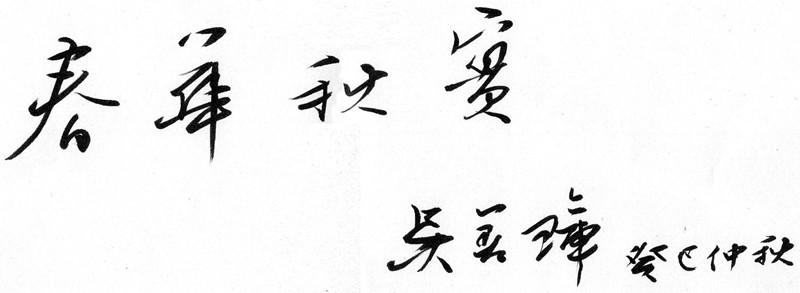 春華秋實
吳善璋 癸巳仲秋